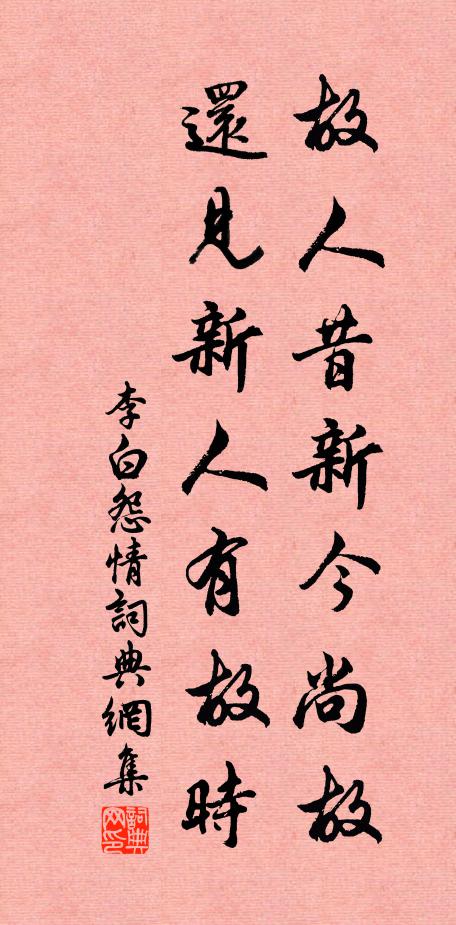 故人昔新今尚故
還見新人有故時
李白怨情詞典網集
詞典
网印